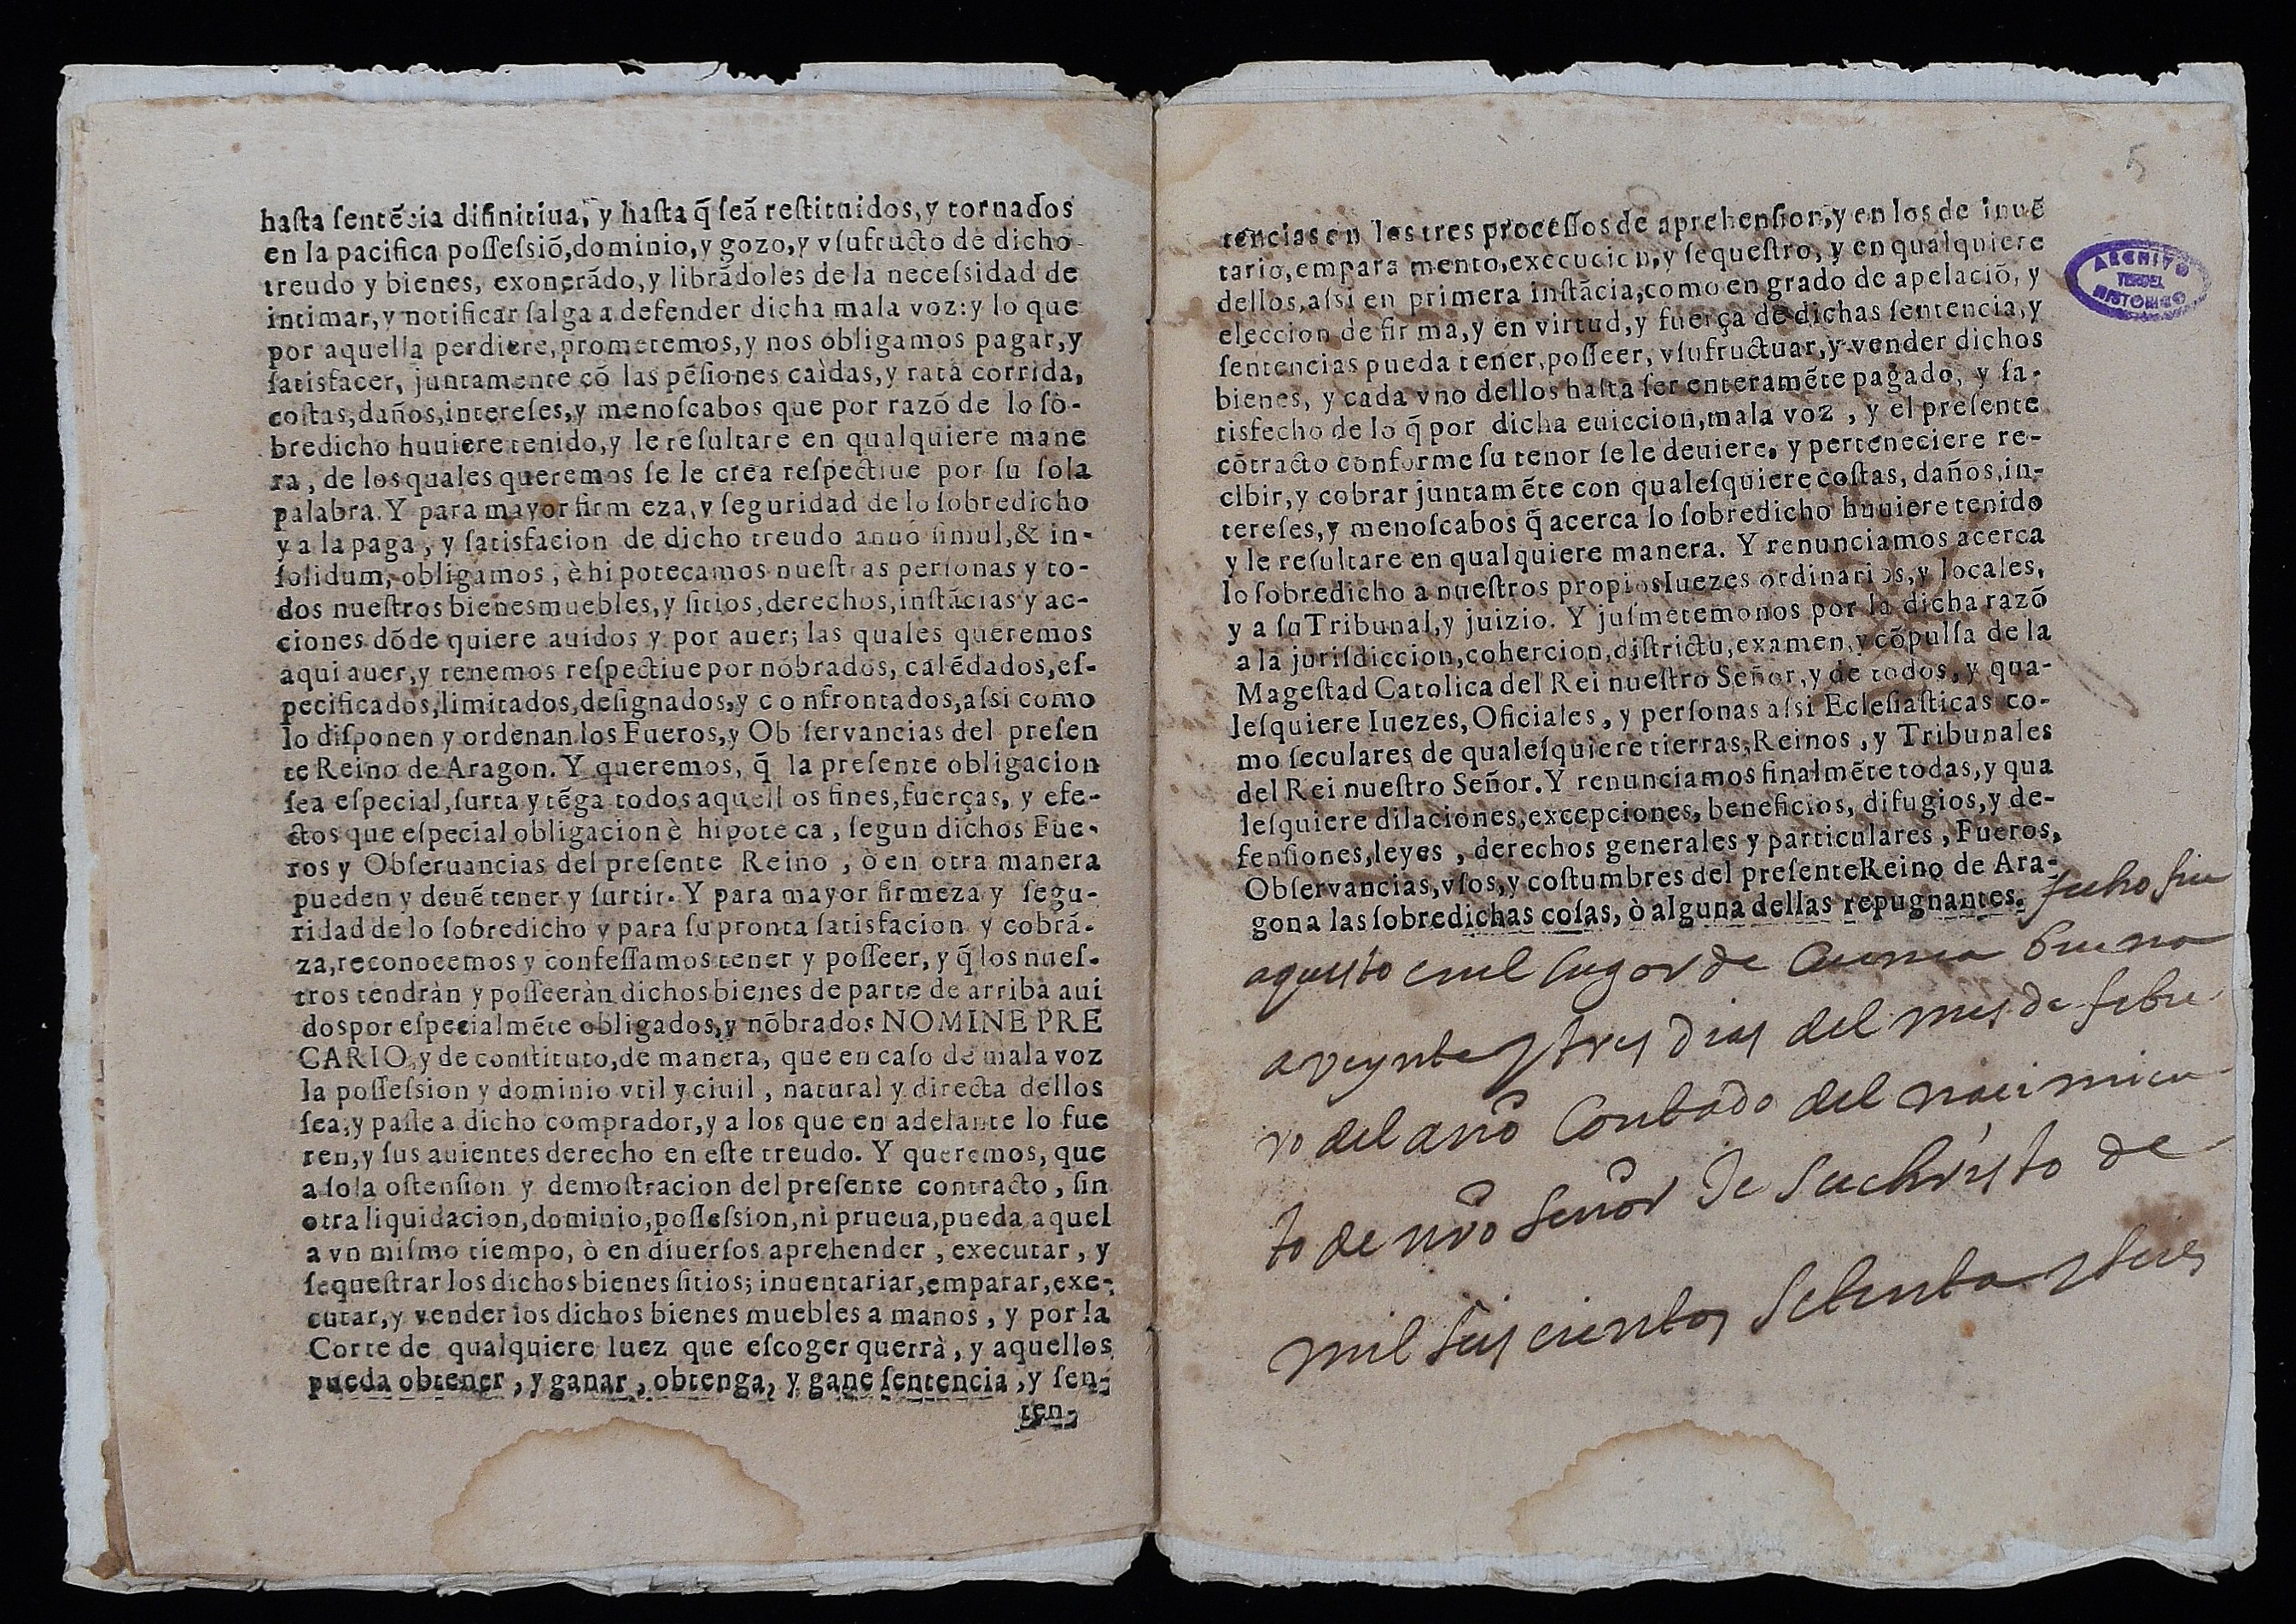 hasta sentẽcia difinitiua, y hasta q̃ seã restituidos, y tornados
en la pacifica possessiõ, dominio, y gozo, y vsufructo de dicho
treudo y bienes, exonerãdo, y librãdoles de la necessidad de
intimar, y notificar salga a defender dicha mala voz: y lo que
por aquella perdiere, prometemos, y nos obligamos pagar, y
satisfacer, juntamente cõ las pẽsiones caìdas, y rata corrida,
costas, daños, intereses, y menoscabos que por razõ de lo so-
bredicho huuiere tenido, y le resultare en qualquiere mane
ra, de los quales queremos se le crea respectiue por su sola
palabra. Y para mayor firm eza, y seguridad de lo sobredicho
y a la paga, y satisfacion de dicho treudo annuo simul, & in-
solidum, obligamos, è hipotecamos nuestras personas y to-
dos nuestros bienes muebles, y sitios, derechos, instãcias y ac-
ciones dõde quiere auidos y por auer; las quales queremos
aqui auer, y tenemos respectiue por nõbrados, calẽdados, es-
pecificados, limitados, designados, y confrontados, assi como
lo disponen y ordenan los Fueros, y Observancias del presen
te Reino de Aragon. Y queremos, q̃ la presente obligacion
sea especial, surta y tẽga todos aquellos fines, fuerças, y efe-
ctos que especial obligacion è hipoteca, segun dichos Fue-
ros y Obseruancias del presente Reino, ò en otra manera
pueden y deuẽ tener y surtir. Y para mayor firmeza y segu-
ridad de lo sobredicho y para su pronta satisfacion y cobrã-
za, reconocemos y confessamos tener y posseer, y q̃ los nues-
tros tendràn y posseeràn dichos bienes de parte de arriba aui
dos por especialmẽte obligados, y nõbrados NOMINE PRE
CARIO, y de constituto, de manera, que en caso de mala voz
la possession y dominio vtil y ciuil, natural y directa dellos
sea, y passe a dicho comprador, y a los que en adelante lo fue
ren, y sus auientes derecho en este treudo. Y queremos, que
a sola ostension y demostracion del presente contracto, sin
otra liquidacion, dominio, possession, ni prueua, pueda aquel
a vn mismo tiempo, ò en diuersos aprehender, executar, y
sequestrar los dichos bienes sitios; inuentariar, emparar, exe-
cutar, y vender los dichos bienes muebles a manos, y por la
Corte de qualquiere Iuez que escoger querrà, y aquellos
pueda obtener, y ganar, obtenga, y gane sentencia, y sen-
ten-
5
tencias en los tres processos de aprehension, y en los de inuẽ
tario, emparamento, execucion, y sequestro, y en qualquiere
dellos, assi en primera instãcia, como en grado de apelaciõ, y
eleccion de firma, y en virtud, y fuerça de dichas sentencia, y
sentencias pueda tener, posseer, vsufructuar, y vender dichos
bienes, y cada vno dellos hasta ser enteramẽte pagado, y sa-
tisfecho de lo q̃ por dicha euiccion, mala voz, y el presente
cõtracto conforme su tenor se le deuiere, y perteneciere re-
cibir, y cobrar juntamẽte con qualesquiere costas, daños, in-
tereses, y menoscabos q̃ acerca lo sobredicho huuiere tenido
y le resultare en qualquiere manera. Y renunciamos acerca
lo sobredicho a nuestros propios Iuezes ordinarios, y locales,
y a su Tribunal, y juizio. Y jusmetemonos por la dicha razõ
a la jurisdiccion, cohercion, districtu, examen, y cõpulsa de la
Magestad Catolica del Rei nuestro Señor, y de todos, y qua-
lesquiere Iuezes, Oficiales, y personas assi Eclesiasticas co-
mo seculares de qualesquiere tierras, Reinos, y Tribunales
del Rei nuestro Señor. Y renunciamos finalmẽte todas, y qua
lesquiere dilaciones, excepciones, beneficios, difugios, y de-
fensiones, leyes, derechos generales y particulares, Fueros,
Observancias, vsos, y costumbres del presente Reino de Ara-
gon a las sobredichas cosas, ò alguna dellas repugnantes. fecho fue
aquesto en el lugar de Cuenca buena
a veynte y tres dias del mes de febre
ro del año Contado del nacimien
to de nr̃o señor Jesuchristo de
mil seiscientos setenta y seis
ARCHIVO
TERUEL
HISTORICO